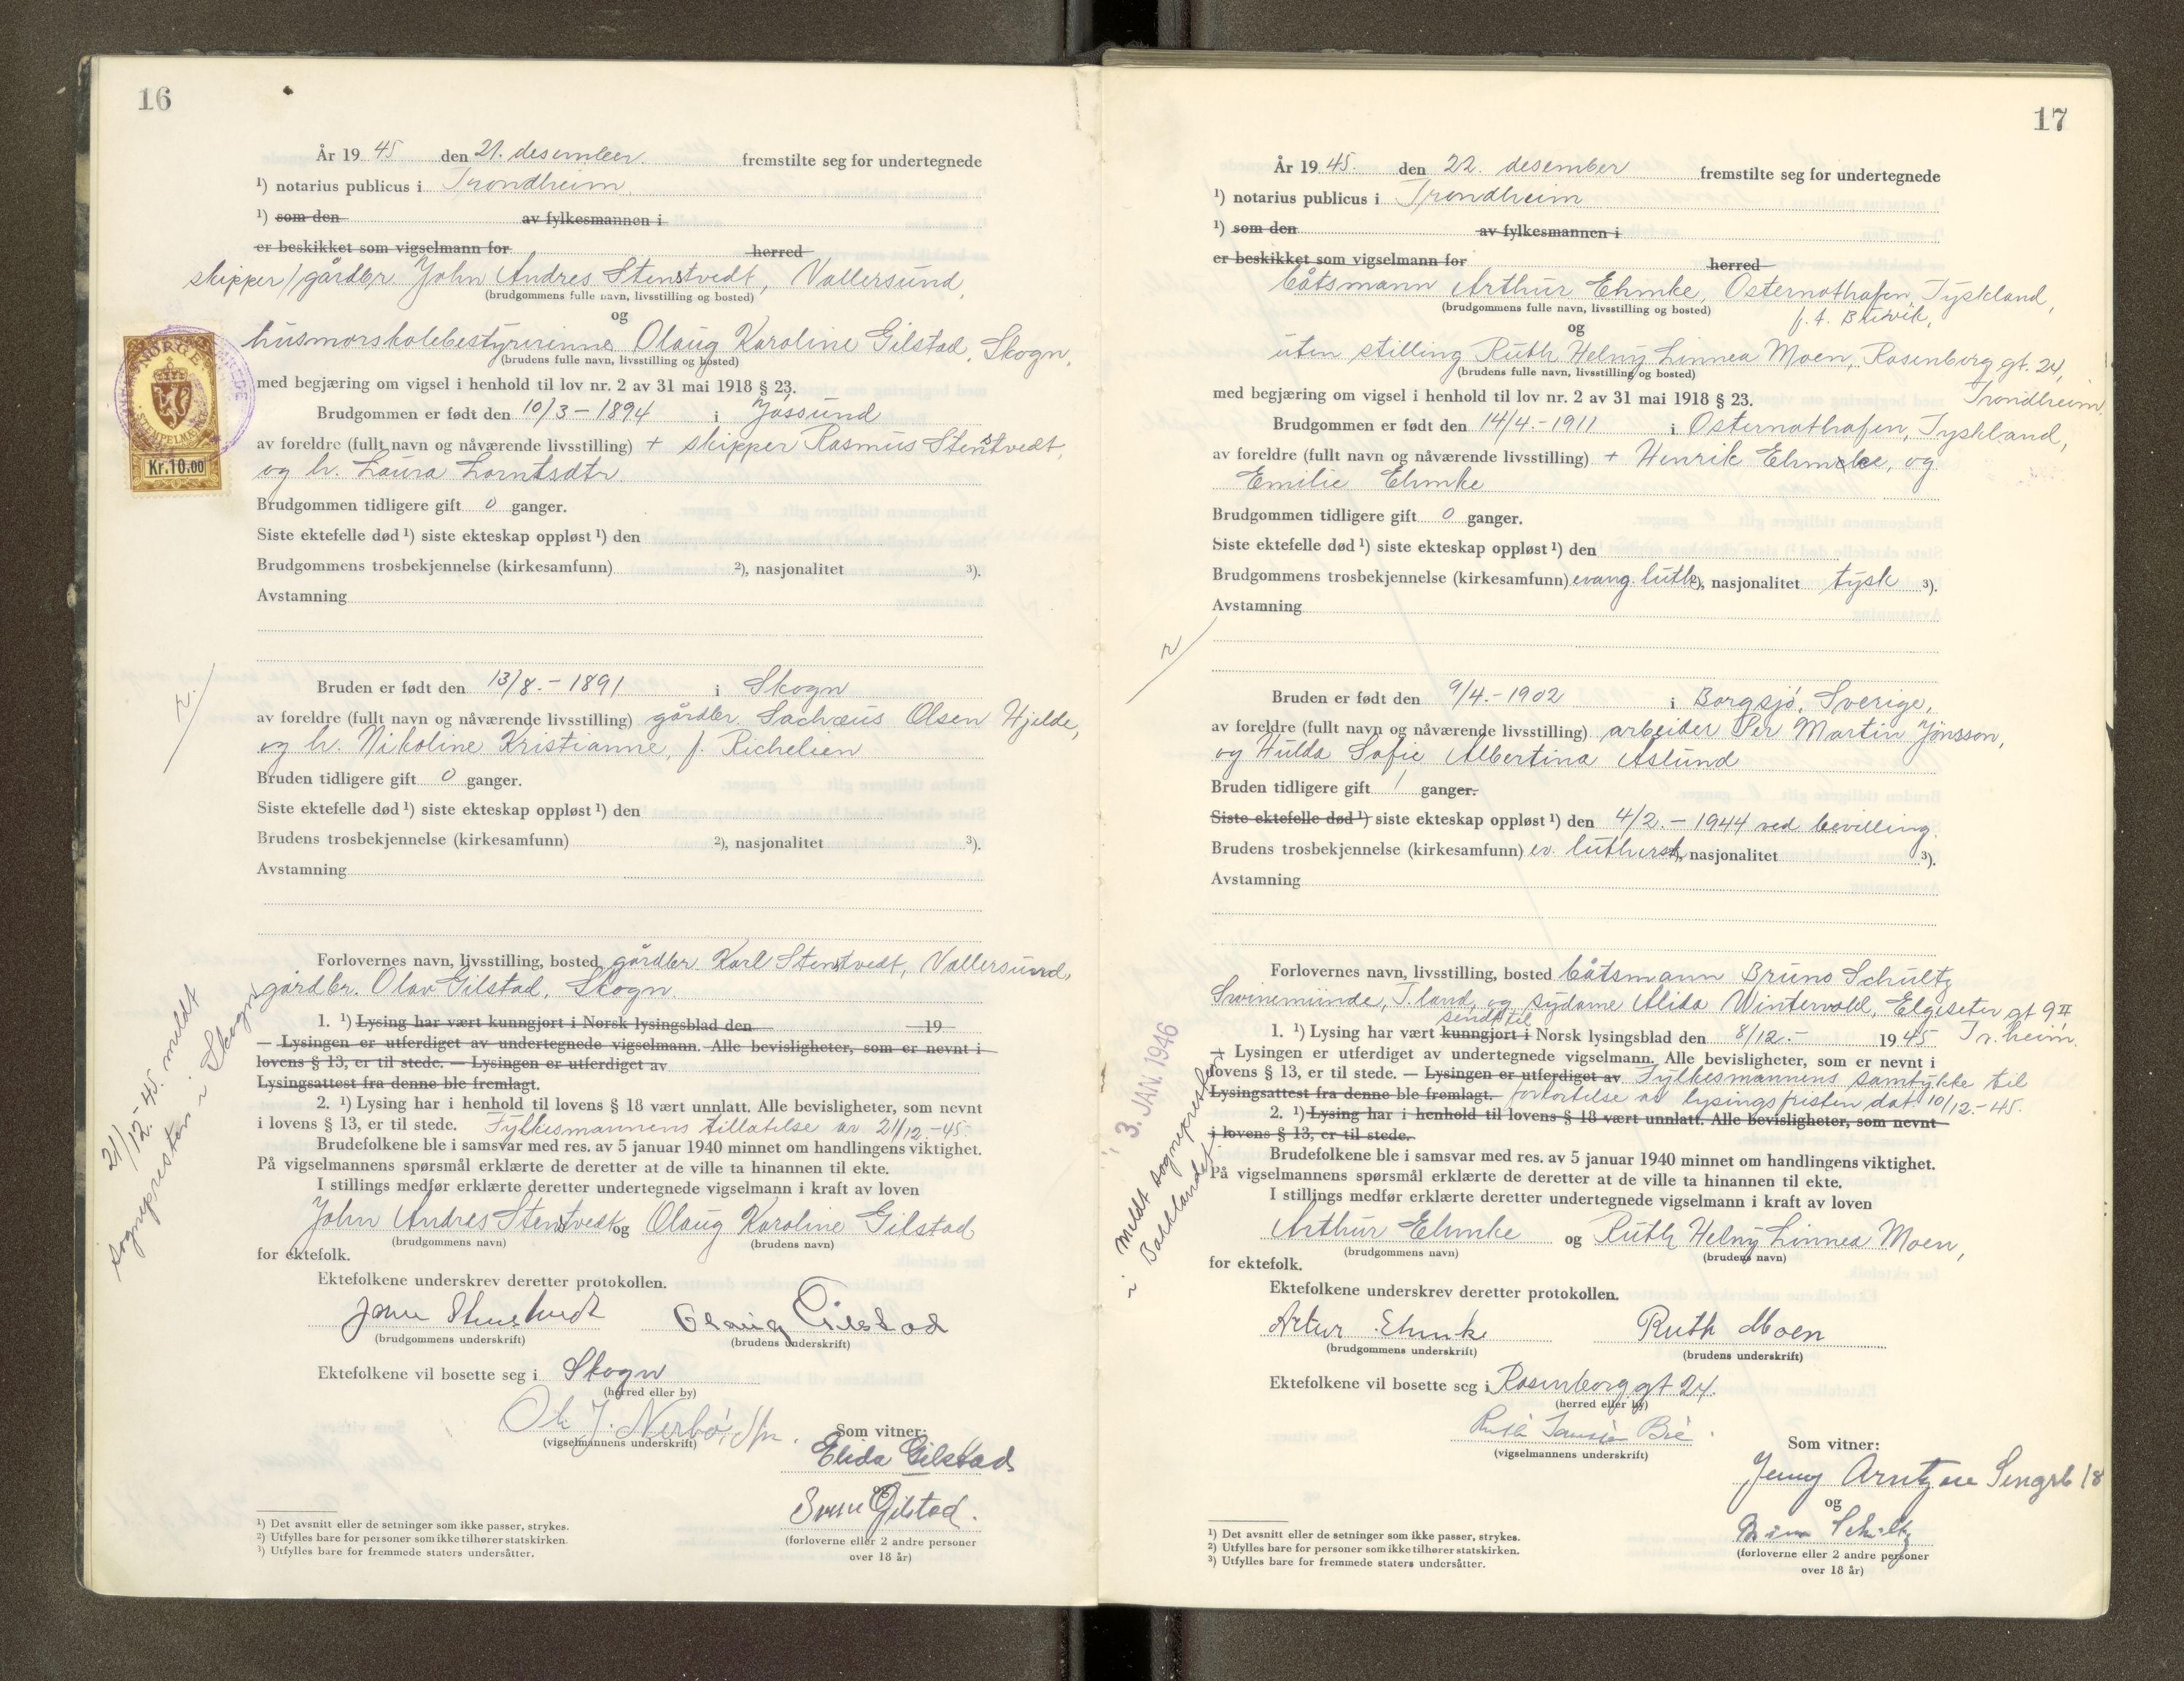 16
År 19 45 den 21. desember fremstilte seg for undertegnede
¹) notarius publicus i Trondheim
¹) som den av fylkesmannen i
er beskikket som vigselmann for herred
skipper/gårdbr John Andres Stenstvedt, Vallersund,
(brudgommens fulle navn, livsstilling og bosted)
og
husmorskolebestyrerinne Olaug Karoline Gilstad, Skogn,
(brudens fulle navn, livsstilling og bosted)
NORGE
STEMPELMERKE
Kr.10.00
med begjæring om vigsel i henhold til lov nr. 2 av 31 mai 1918 § 23.
Brudgommen er født den 10/3 - 1894 i Jøssund
av foreldre (fullt navn og nåværende livsstilling) + skipper Rasmus Stenstvedt,
og h. Laura Lorntsdtr
Brudgommen tidligere gift 0 ganger.
Siste ektefelle død ¹) siste ekteskap oppløst ¹) den
Brudgommens trosbekjennelse (kirkesamfunn) ²), nasjonalitet ³).
Avstamning
Bruden er født den 13/8. - 1891 i Skogn
av foreldre (fullt navn og nåværende livsstilling) gårdbr. Sachæus Olsen Hjelde,
og h. Nikoline Kristianne, f. Richelien
Bruden tidligere gift 0 ganger.
Siste ektefelle død ¹) siste ekteskap oppløst ¹) den
Brudens trosbekjennelse (kirkesamfunn) ²), nasjonalitet ³).
Avstamning
Forlovernes navn, livsstilling, bosted gårdbr Karl Stenstvedt, Vallersund,
gårdbr. Olav Gilstad, Skogn.
1. ¹) Lysing har vært kunngjort i Norsk lysingsblad den 19
— Lysingen er utferdiget av undertegnede vigselmann. Alle bevisligheter, som er nevnt i
lovens § 13, er til stede. — Lysingen er utferdiget av
Lysingsattest fra denne ble fremlagt.
2. ¹) Lysing har i henhold til lovens § 18 vært unnlatt. Alle bevisligheter, som nevnt
i lovens § 13, er til stede. Fylkesmannens tillatelse av 21/12.-45.
Brudefolkene ble i samsvar med res. av 5 januar 1940 minnet om handlingens viktighet.
På vigselmannens spørsmål erklærte de deretter at de ville ta hinannen til ekte.
I stillings medfør erklærte deretter undertegnede vigselmann i kraft av loven
John Andres Stenstvedt og Olaug Karoline Gilstad
(brudgommens navn) (brudens navn)
for ektefolk.
Ektefolkene underskrev deretter protokollen.
Olaug Gilstad
(brudgommens underskrift) (brudens underskrift)
Ektefolkene vil bosette seg i Skogn
(herred eller by)
(vigselmannens underskrift)
Som vitner:
Elida Gilstad
og
Svein Gilstad.
(forloverne eller 2 andre personer
over 18 år)
¹) Det avsnitt eller de setninger som ikke passer, strykes.
²) Utfylles bare for personer som ikke tilhører statskirken.
³) Utfylles bare for fremmede staters undersåtter.
21/12-45. meldt
sognepresten i Skogn
17
År 19 45. den 22. desember fremstilte seg for undertegnede
¹) notarius publicus i Trondheim
¹) som den av fylkesmannen i
er beskikket som vigselmann for herred
båtsmann Arthur Ehmke, Osternothafen, Tyskland,
(brudgommens fulle navn, livsstilling og bosted) f. t. Buvik,
og
uten stilling Ruth Helny Linnea Moen, Rosenborg gt. 24,
(brudens fulle navn, livsstilling og bosted)
Trondheim.
med begjæring om vigsel i henhold til lov nr. 2 av 31 mai 1918 § 23.
Brudgommen er født den 14/4. - 1911 i Osternothafen, Tyskland,
av foreldre (fullt navn og nåværende livsstilling) + Henrik Ehmke, og
Emilie Ehmke
Brudgommen tidligere gift 0 ganger.
Siste ektefelle død ¹) siste ekteskap oppløst ¹) den
Brudgommens trosbekjennelse (kirkesamfunn) evang. luth ²), nasjonalitet tysk ³).
Avstamning
Bruden er født den 9/4. - 1902 i Borgsjö, Sverige,
av foreldre (fullt navn og nåværende livsstilling) arbeider Per Martin Jönsson,
og Hulda Sofie Albertina Aslund
Bruden tidligere gift 1 ganger.
Siste ektefelle død ¹) siste ekteskap oppløst ¹) den 4/2. - 1944 ved bevilling.
Brudens trosbekjennelse (kirkesamfunn) ev. luthersk, nasjonalitet ³).
Avstamning
Forlovernes navn, livsstilling, bosted båtsmann Bruno Schultz
Swinemünde, T.land, og sydame Alida Wintervold, Elgeseter gt 9 II
Tr.heim.
sendt til
1. ¹) Lysing har vært kunngjort i Norsk lysingsblad den 8/12. - 19 45
— Lysingen er utferdiget av undertegnede vigselmann. Alle bevisligheter, som er nevnt i
lovens § 13, er til stede. — Lysingen er utferdiget av Fylkesmannens samtykke til
Lysingsattest fra denne ble fremlagt. forkortelse av lysingsfristen dat. 10/12.-45.
2. ¹) Lysing har i henhold til lovens § 18 vært unnlatt. Alle bevisligheter, som nevnt
i lovens § 13, er til stede.
Brudefolkene ble i samsvar med res. av 5 januar 1940 minnet om handlingens viktighet.
På vigselmannens spørsmål erklærte de deretter at de ville ta hinannen til ekte.
I stillings medfør erklærte deretter undertegnede vigselmann i kraft av loven
Arthur Ehmke og Ruth Helny Linnea Moen,
(brudgommens navn) (brudens navn)
for ektefolk.
Ektefolkene underskrev deretter protokollen.
Artur Ehmke Ruth Moen
(brudgommens underskrift) (brudens underskrift)
Ektefolkene vil bosette seg i Rosenborg gt 24.
(herred eller by)
(vigselmannens underskrift)
Som vitner:
Jenny Arntzen 18
og
Schultz
(forloverne eller 2 andre personer
over 18 år)
¹) Det avsnitt eller de setninger som ikke passer, strykes.
²) Utfylles bare for personer som ikke tilhører statskirken.
³) Utfylles bare for fremmede staters undersåtter.
3. JAN. 1946
meldt sognepresten
i Bakklandet